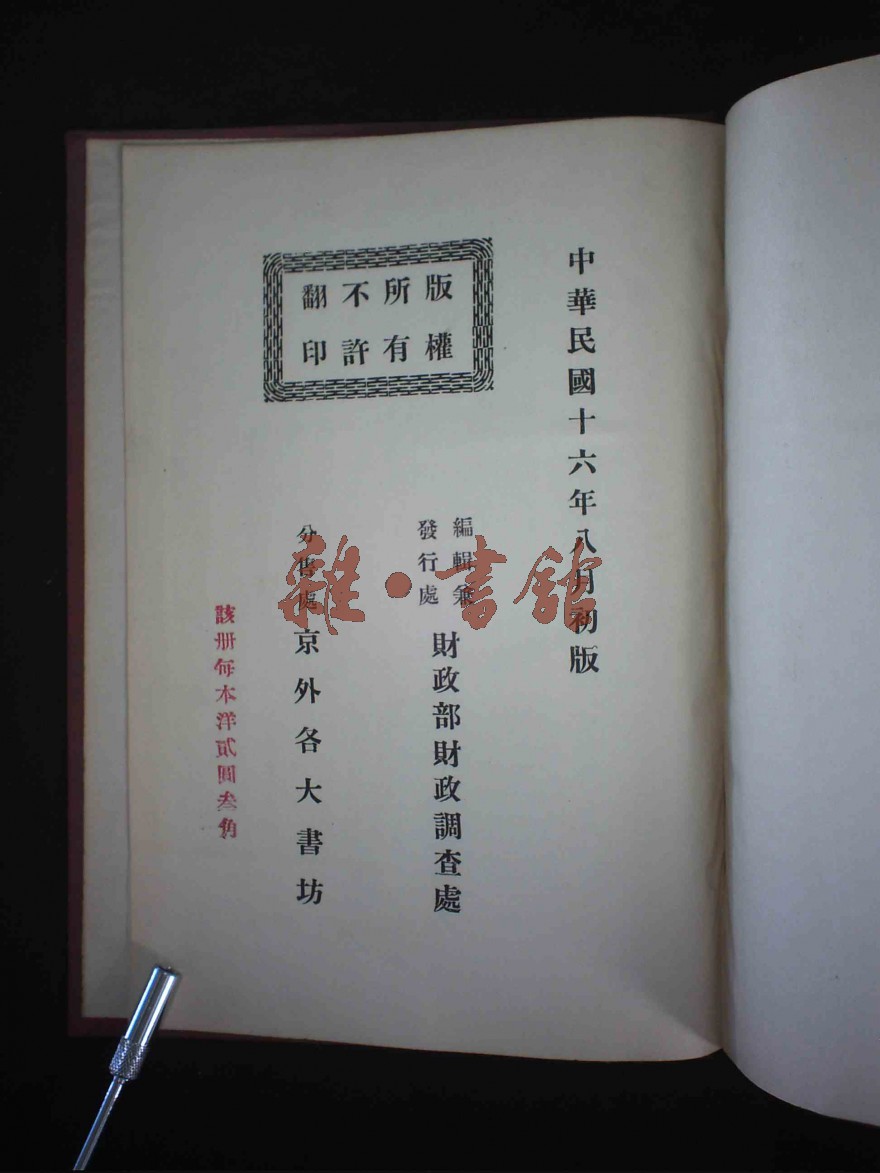 中華民國十六年八月初版
版權所有不許翻印
編輯兼發行處
財政部財政調查處
分售處
京外各大書坊
該册每本洋貳圓叁角
雜·書館